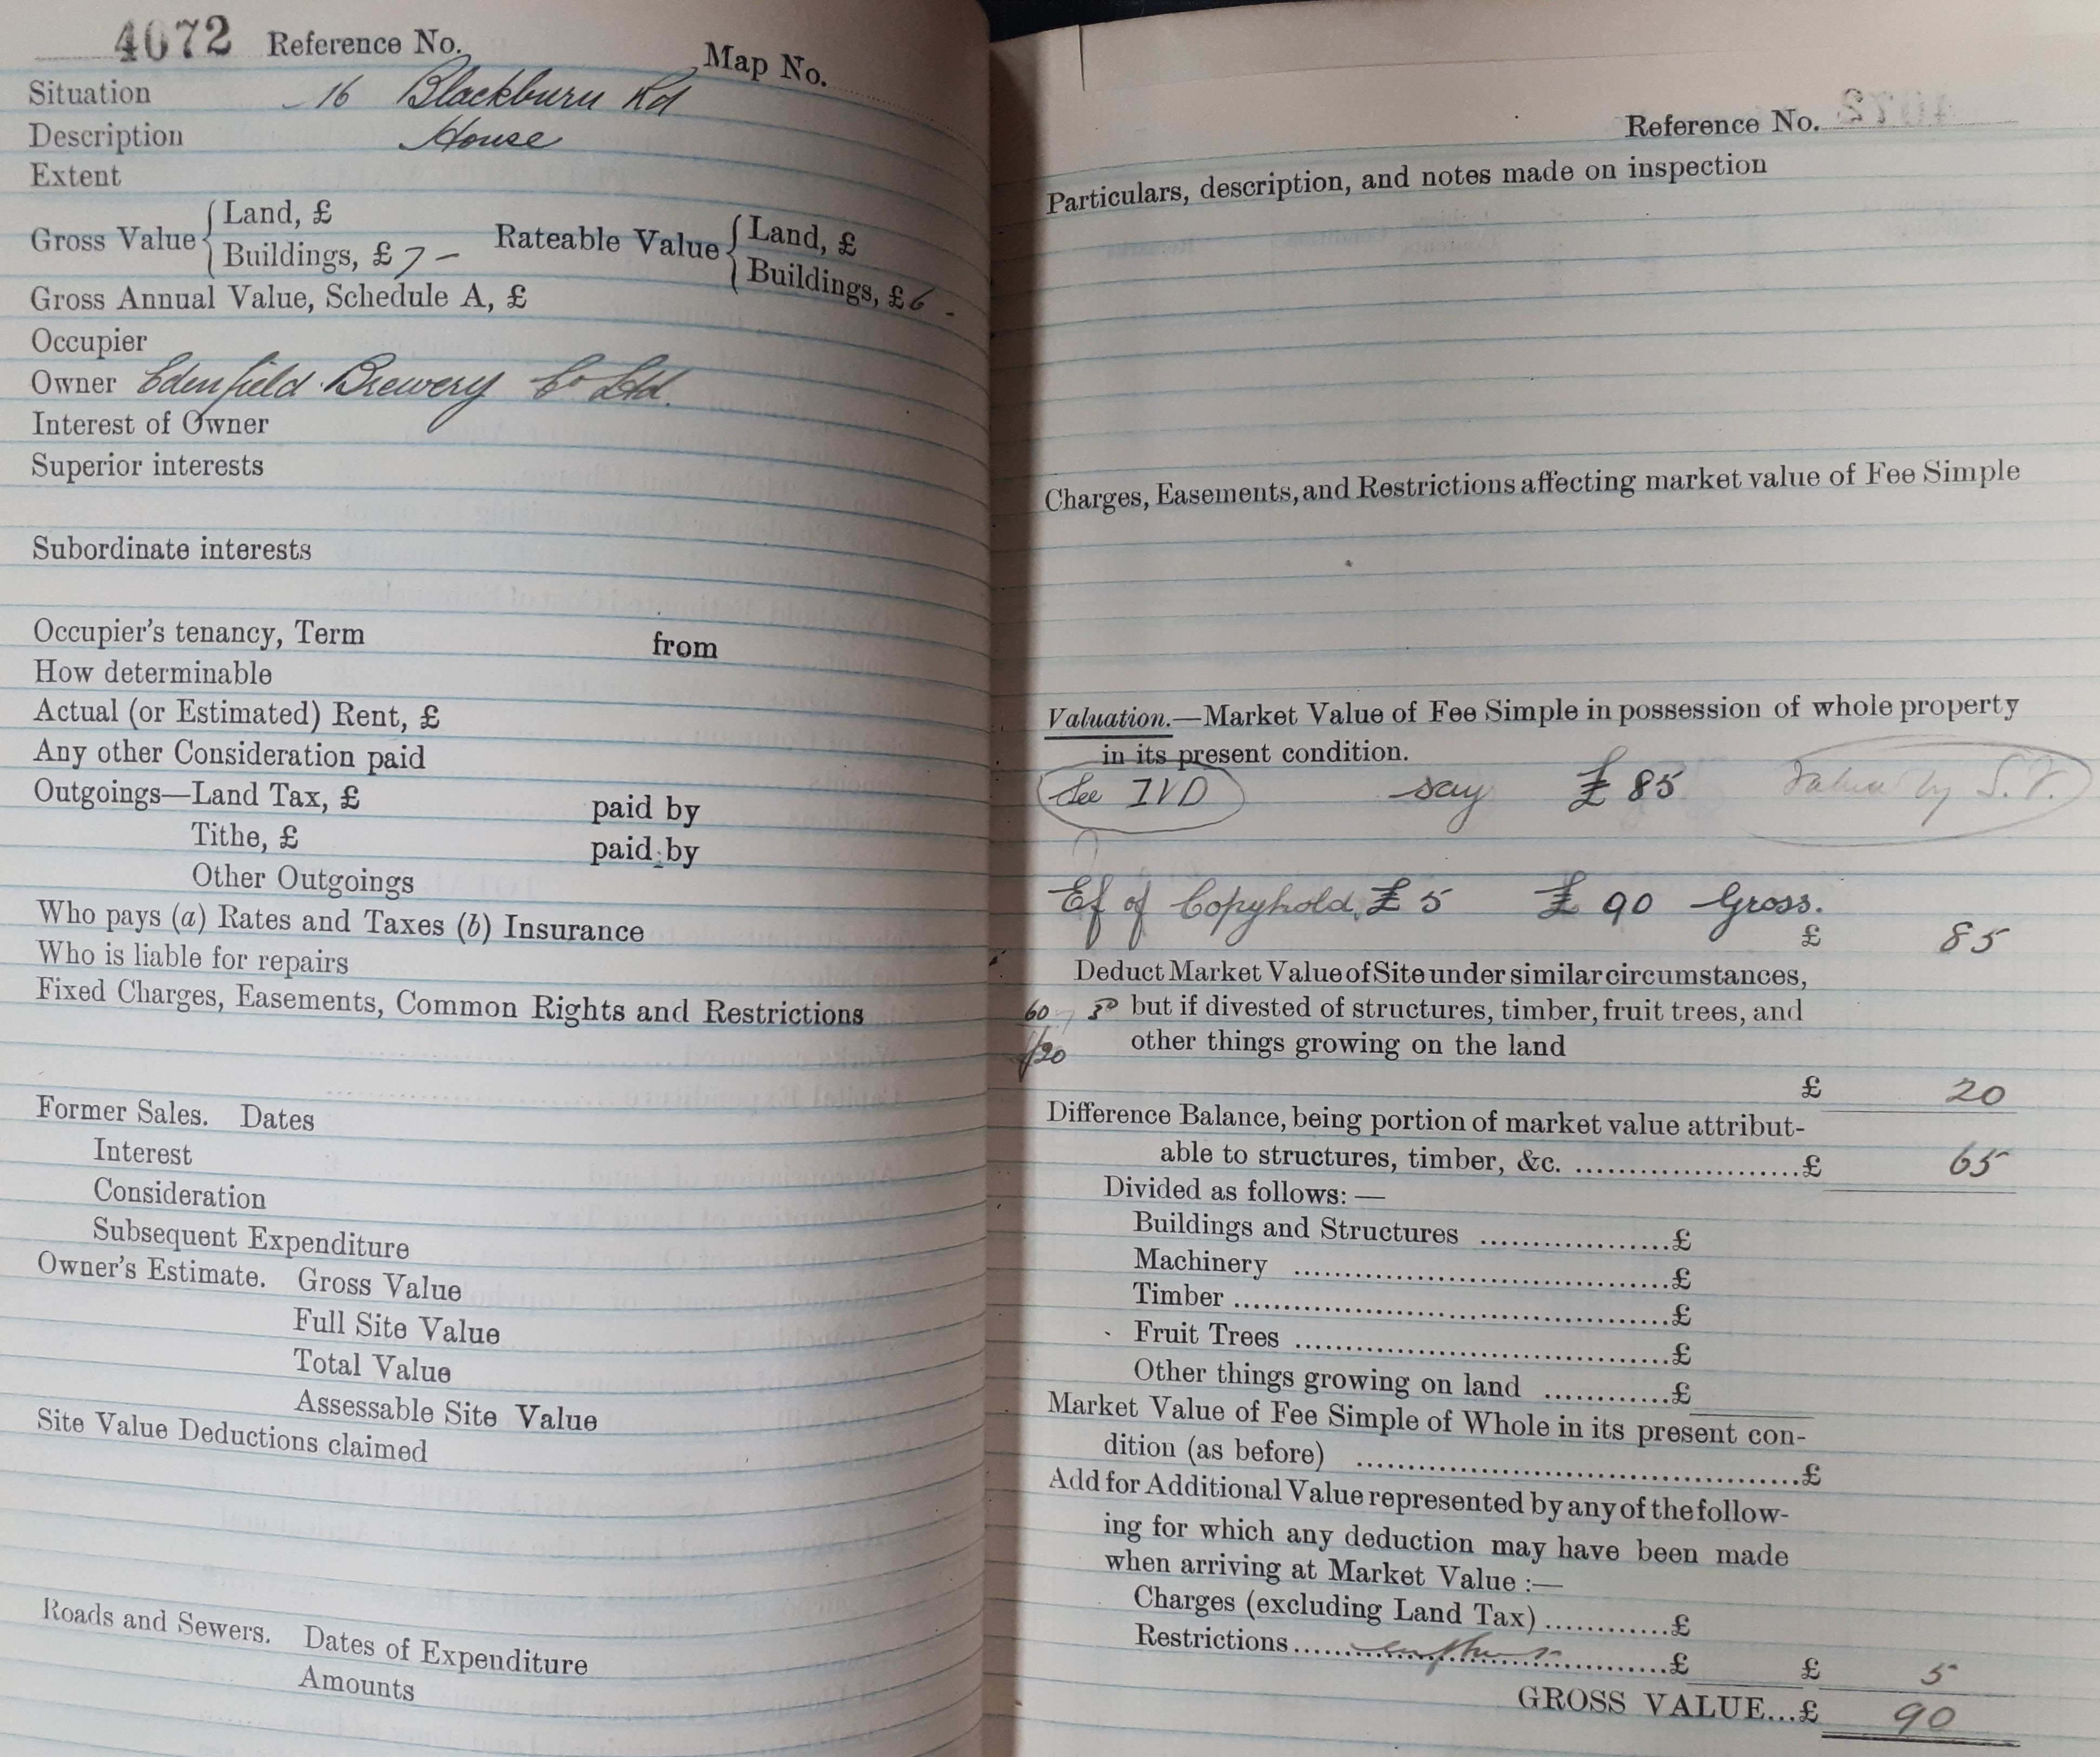 4072 Reference No. Map No.
Situation 16 Blackburn Rd
Description House
Extent
Gross Value { Land, £
Buildings, £ 7 – Rateable Value { Land, £
Buildings, £ 6 -
Gross Annual Value, Schedule A, £
Occupier
Owner Edenfield Brewery Co Ltd.
Interest of Owner
Superior interests
Subordinate interests
Occupier's tenancy, Term from
How determinable
Actual (or Estimated) Rent, £
Any other Consideration paid
Outgoings—Land Tax, £ paid by
Tithe, £ paid by
Other Outgoings
Who pays (a) Rates and Taxes (b) Insurance
Who is liable for repairs
Fixed Charges, Easements, Common Rights and Restrictions
Former Sales. Dates
Interest
Consideration
Subsequent Expenditure
Owner's Estimate. Gross Value
Full Site Value
Total Value
Assessable Site Value
Site Value Deductions claimed
Roads and Sewers. Dates of Expenditure
Amounts
Reference No.
Particulars, description, and notes made on inspection
Charges, Easements, and Restrictions affecting market value of Fee Simple
Valuation.—Market Value of Fee Simple in possession of whole property
in its present condition.
See IVD say £ 85 by S.V.
Ef of Copyhold £ 5 £ 90 Gross.
£ 85
Deduct Market Value of Site under similar circumstances,
60 but if divested of structures, timber, fruit trees, and
/20 other things growing on the land
£ 20
Difference Balance, being portion of market value attribut-
able to structures, timber, &c. ........................£ 65
Divided as follows: —
Buildings and Structures ...................£
Machinery .....................................£
Timber ...........................................£
Fruit Trees .....................................£
Other things growing on land ............£
Market Value of Fee Simple of Whole in its present con-
dition (as before) ............................................£
Add for Additional Value represented by any of the follow-
ing for which any deduction may have been made
when arriving at Market Value :—
Charges (excluding Land Tax) ............£
Restrictions .....................................£ £ 5
GROSS VALUE...£ 90